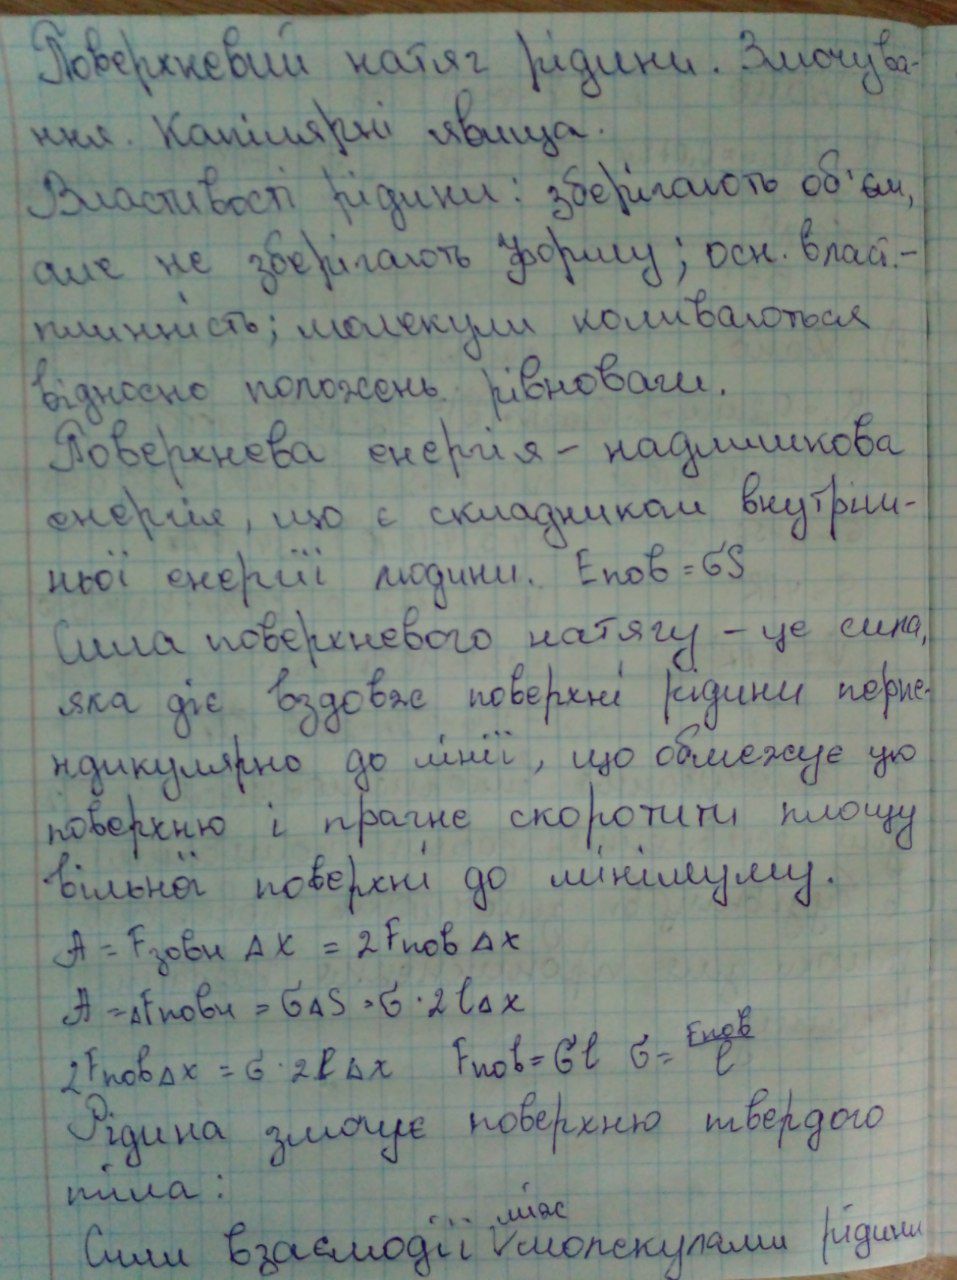 Поверхневий натяг рідини. Змочува-
ння. Капілярні явища.
Властивості рідини: зберігають об'єм,
але не зберігають форму; осн. власт.-
плинність; молекули коливаються
відносно положень рівноваги.
Поверхнева енергія – надлишкова
енергія, що є складником внутріш-
ньої енергії людини. Eпов = σS
Сила поверхневого натягу – це сила,
яка діє вздовж поверхні рідини перпе-
ндикулярно до лінії, що обмежує цю
поверхню і прагне скоротити площу
вільної поверхні до мінімуму.
A = Fзовн Δx = 2Fпов Δx
A = ΔEповн = σΔS = σ · 2lΔx
2FповΔx = σ · 2lΔx Fпов = σl σ = Fпов/l
Рідина змочує поверхню твердого
тіла:
Сили взаємодії між молекулами рідини